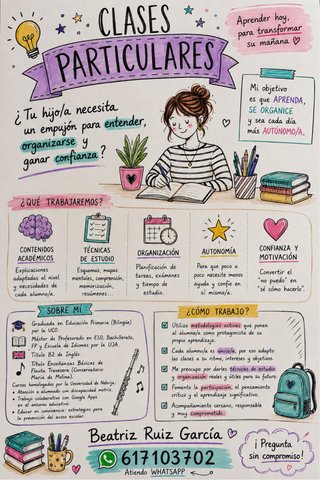 CLASES
PARTICULARES
Aprender hoy,
para transformar
su mañana
¿Tu hijo/a necesita
un empujón para entender,
organizarse y
ganar confianza?
Mi objetivo
es que APRENDA,
SE ORGANICE
y sea cada día
más AUTÓNOMO/A.
¿QUÉ TRABAJAREMOS?
CONTENIDOS
ACADÉMICOS
Explicaciones
adaptadas al nivel
y necesidades de
cada alumno/a.
TÉCNICAS
DE ESTUDIO
Esquemas, mapas
mentales, comprensión,
memorización,
resúmenes...
ORGANIZACIÓN
Planificación de
tareas, exámenes
y tiempo de
estudio.
AUTONOMÍA
Para que poco a
poco necesite menos
ayuda y confíe en
sí mismo/a.
CONFIANZA Y
MOTIVACIÓN
Convertir el
"no puedo" en
"sé cómo hacerlo".
SOBRE MÍ
Graduada en Educación Primaria (Bilingüe)
por la UCO.
Máster de Profesorado en ESO, Bachillerato,
FP y Escuela de Idiomas por la UJA.
Título B2 de Inglés.
Título Enseñanzas Básicas de
Flauta Travesera (Conservatorio
María de Molina).
Cursos homologados por la Universidad de Nebrija:
• Atención a alumnado con discapacidad motriz.
• Trabajo colaborativo con Google Apps
en el entorno educativo.
• Educar en convivencia: estrategias para
la prevención del acoso escolar.
¿CÓMO TRABAJO?
Utilizo metodologías activas que ponen
al alumno/a como protagonista de su
propio aprendizaje.
Cada alumno/a es único/a, por eso adapto
las clases a su ritmo, intereses y objetivos.
Me preocupo por darles técnicas de estudio
y organización reales y útiles para su futuro.
Fomento la participación, el pensamiento
crítico y el aprendizaje significativo.
Acompañamiento cercano, responsable
y muy comprometido.
Beatriz Ruiz García
617103702
Atiendo WHATSAPP
¡Pregunta
sin compromiso!